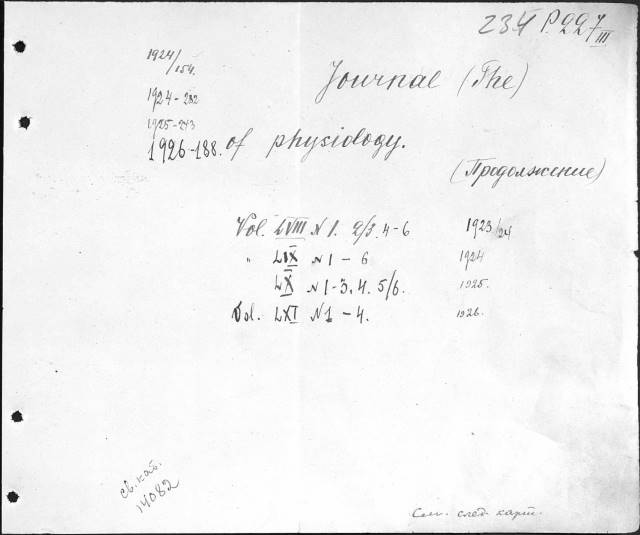 234 P. 227
III
1924/154.
1924-282
1925-243
1926-188.
Journal (The)
of physiology.
(Продолжение)
Vol. LVIII N 1. 2/3. 4-6 1923/24
" LIX N 1 - 6 1924
LX N 1-3. 4. 5/6. 1925.
Vol. LXI N 1 - 4. 1926.
св. кат.
14082
См. след. карт.